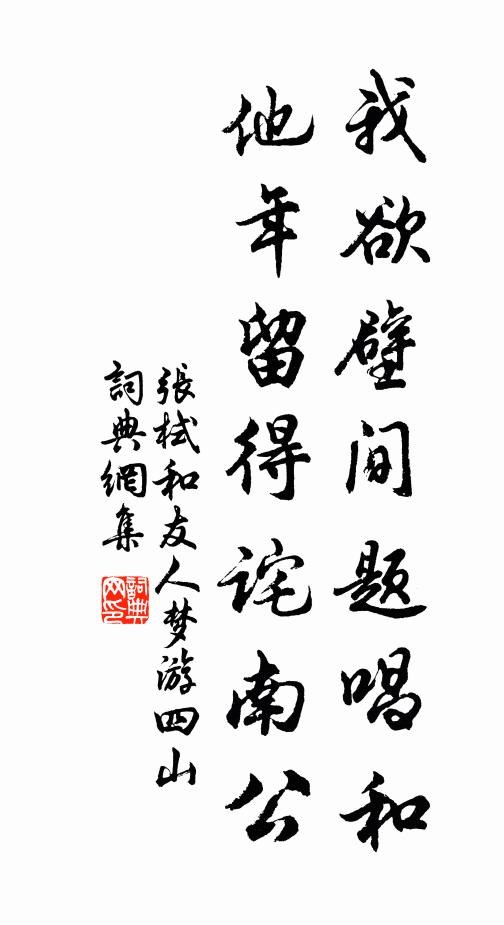 我欲壁间题唱和
他年留得詫南公
張栻和友人梦游四山
詞典網集
詞典网印